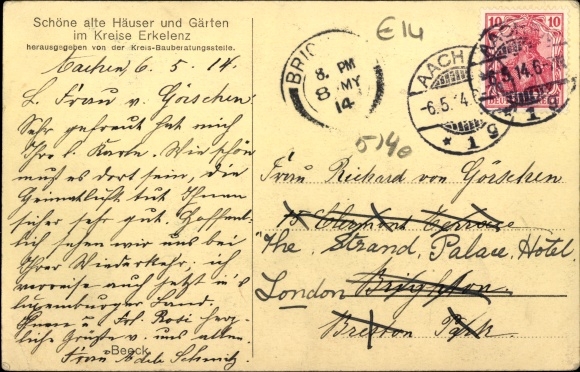 Schöne alte Häuser und Gärten
im Kreise Erkelenz
herausgegeben von der Kreis-Bauberatungsstelle.
Aachen, 6. 5. 14.
L. Frau v. Görschen
Sehr gefreut hat mich
Ihre l. Karte. Wie schön
muß es dort sein, die
Heimatluft tut Ihnen
sicher sehr gut. Hoffent-
lich sehen wir uns bei
Ihrer Wiederkehr, ich
verreise auch jetzt in's
Luxemburger Land.
Ihnen u. Frl. Rosi herz-
liche Grüße v. uns allen.
Frau Adele Schmitz
Beeck
E14
5140
BRIG
8. PM
8 MY
14
AACHEN
-6.5.14.6-
* 1 g
AACHEN
-6.5.14.6-
* 1 g
10 10
Frau Richard von Görschen
Clermont Terrace
"The Strand Palace Hotel
London Brighton
Preston Park.